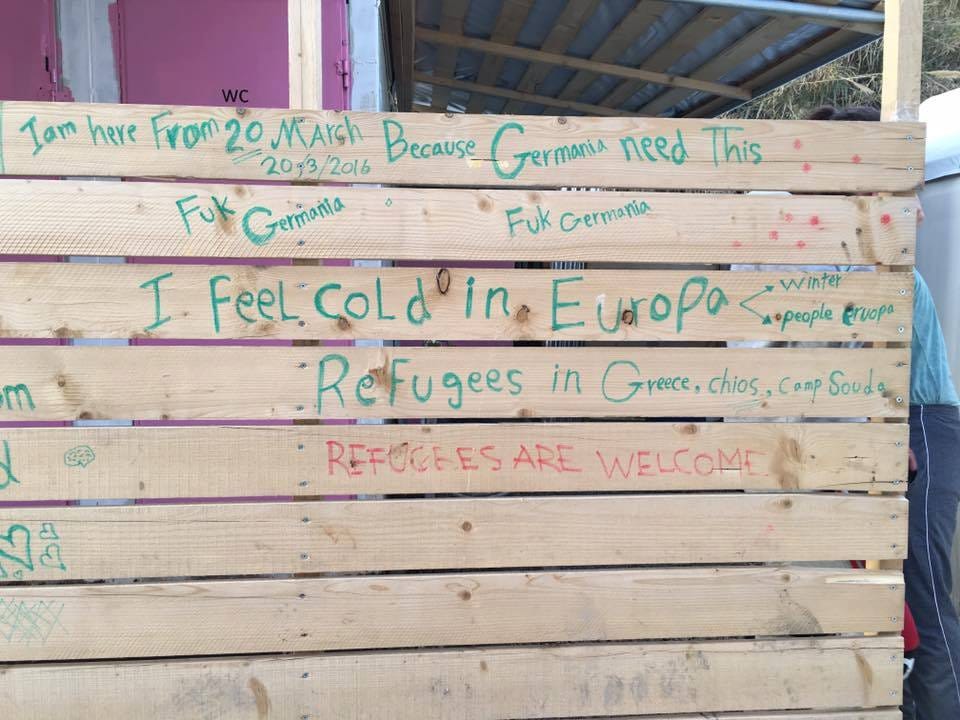 WC
I am here From 20 MArch Because Germania need This
20/3/2016
Fuk Germania Fuk Germania
I Feel coLd in Europa
winter
people eruopa
m
Refugees in Greece, chios, camp Souda
d
REFUGEES ARE WELCOME